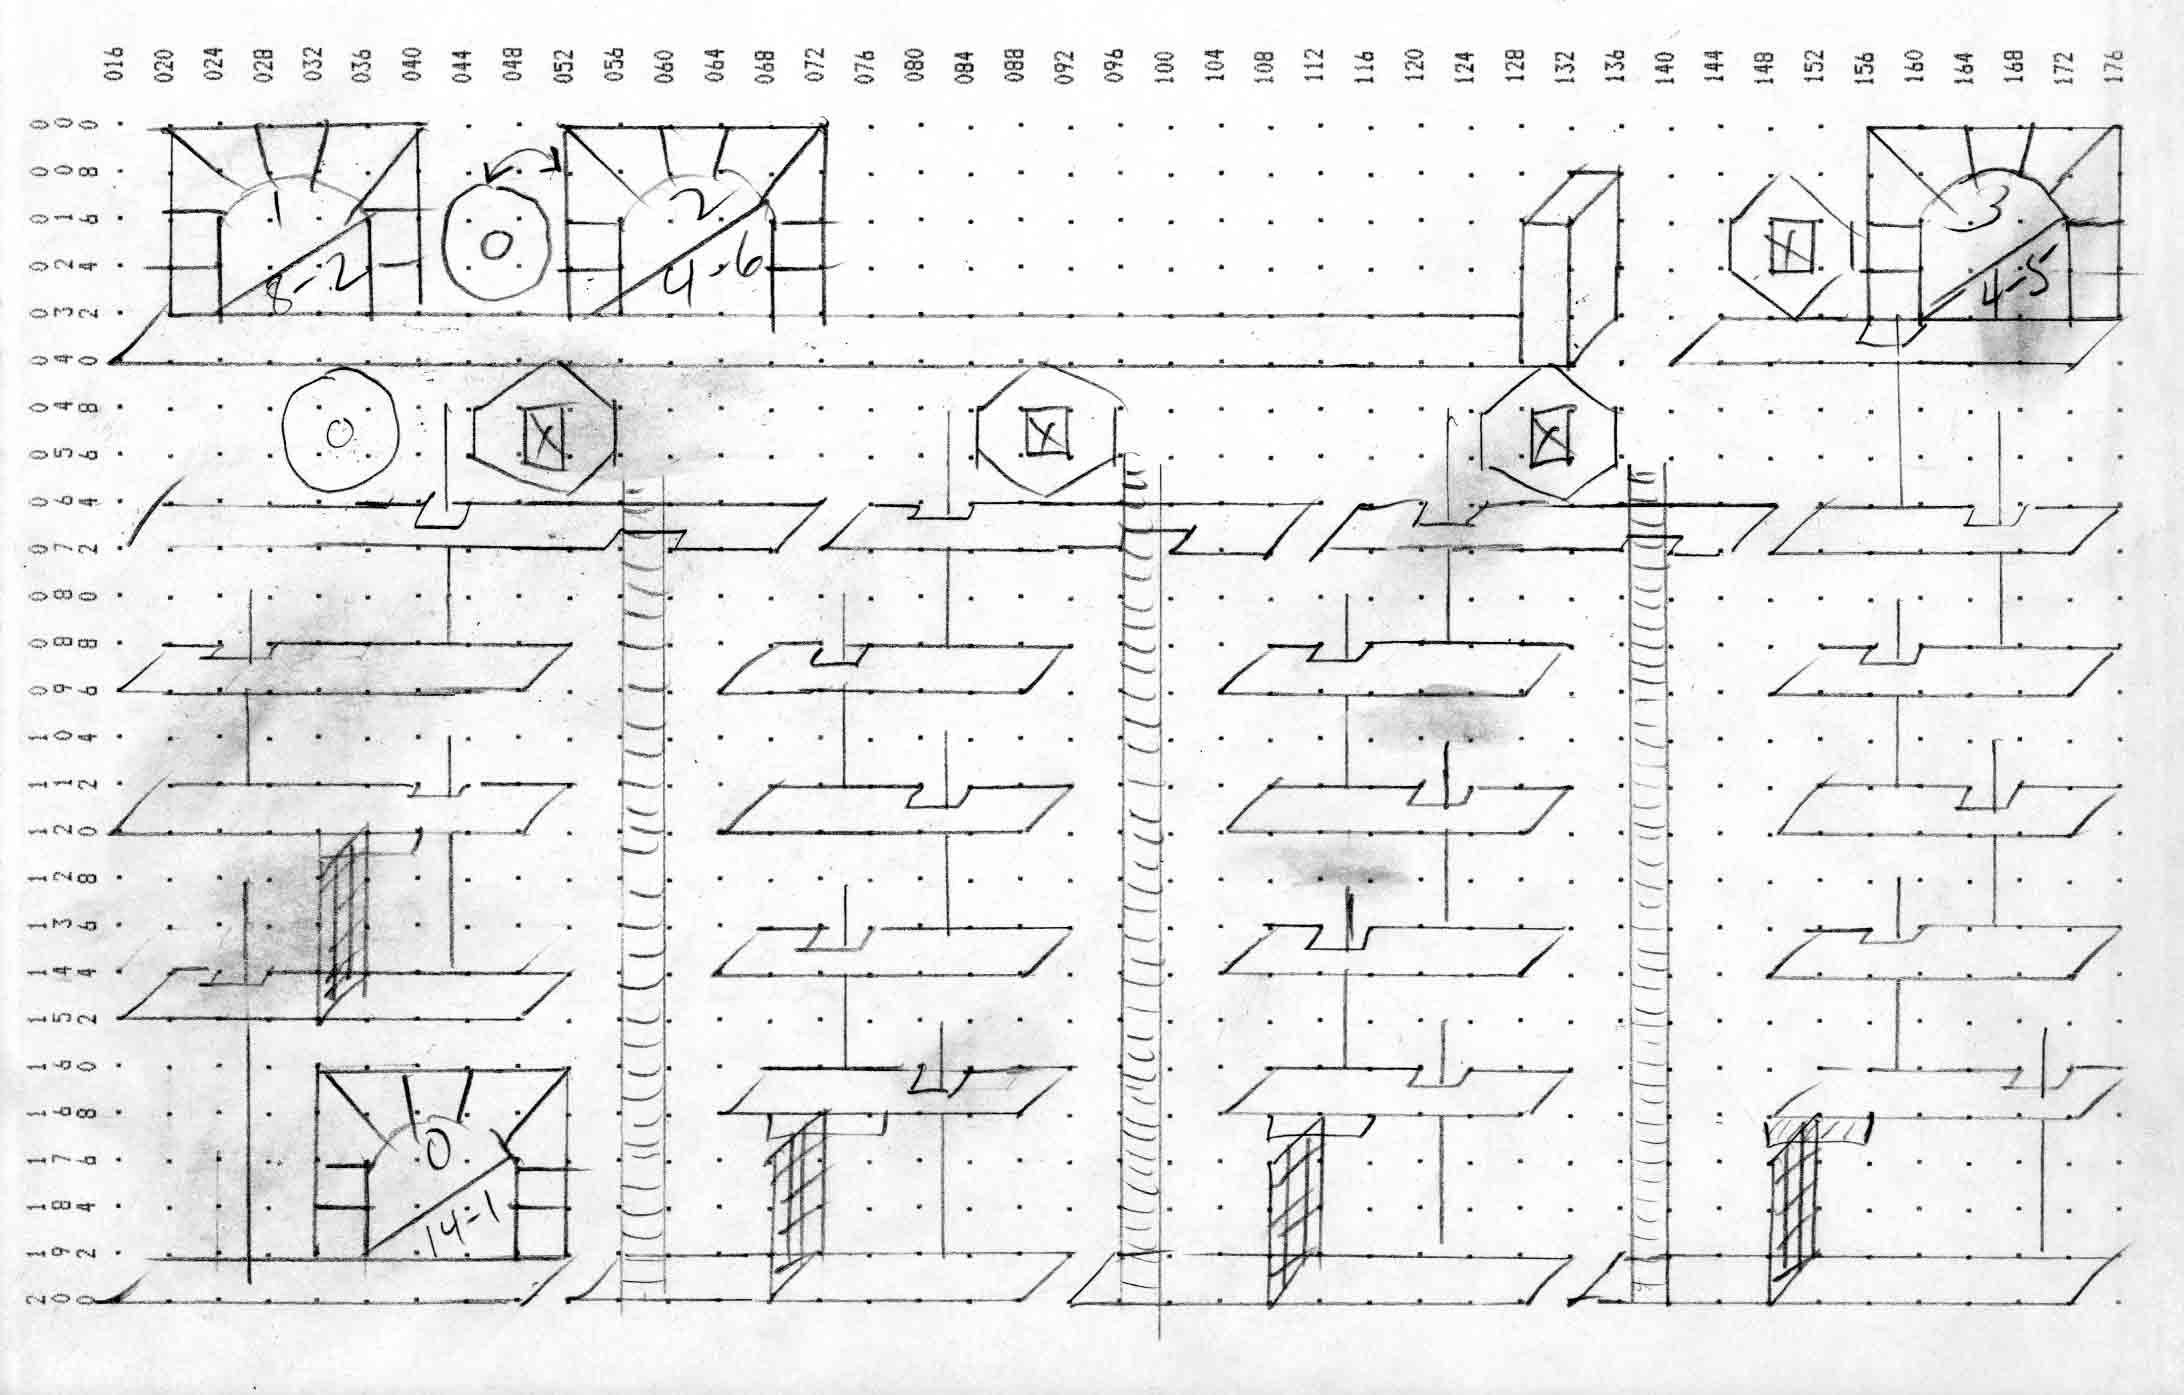 016 020 024 028 032 036 040 044 048 052 056 060 064 068 072 076 080 084 088 092 096 100 104 108 112 116 120 124 128 132 136 140 144 148 152 156 160 164 168 172 176
000
008
1 2 3
016
0 X
024
8-2 4-6 4-5
032
040
048
0 X X X
056
064
072
080
088
096
104
112
120
128
136
144
152
160
168
0
176
184
14-1
192
200